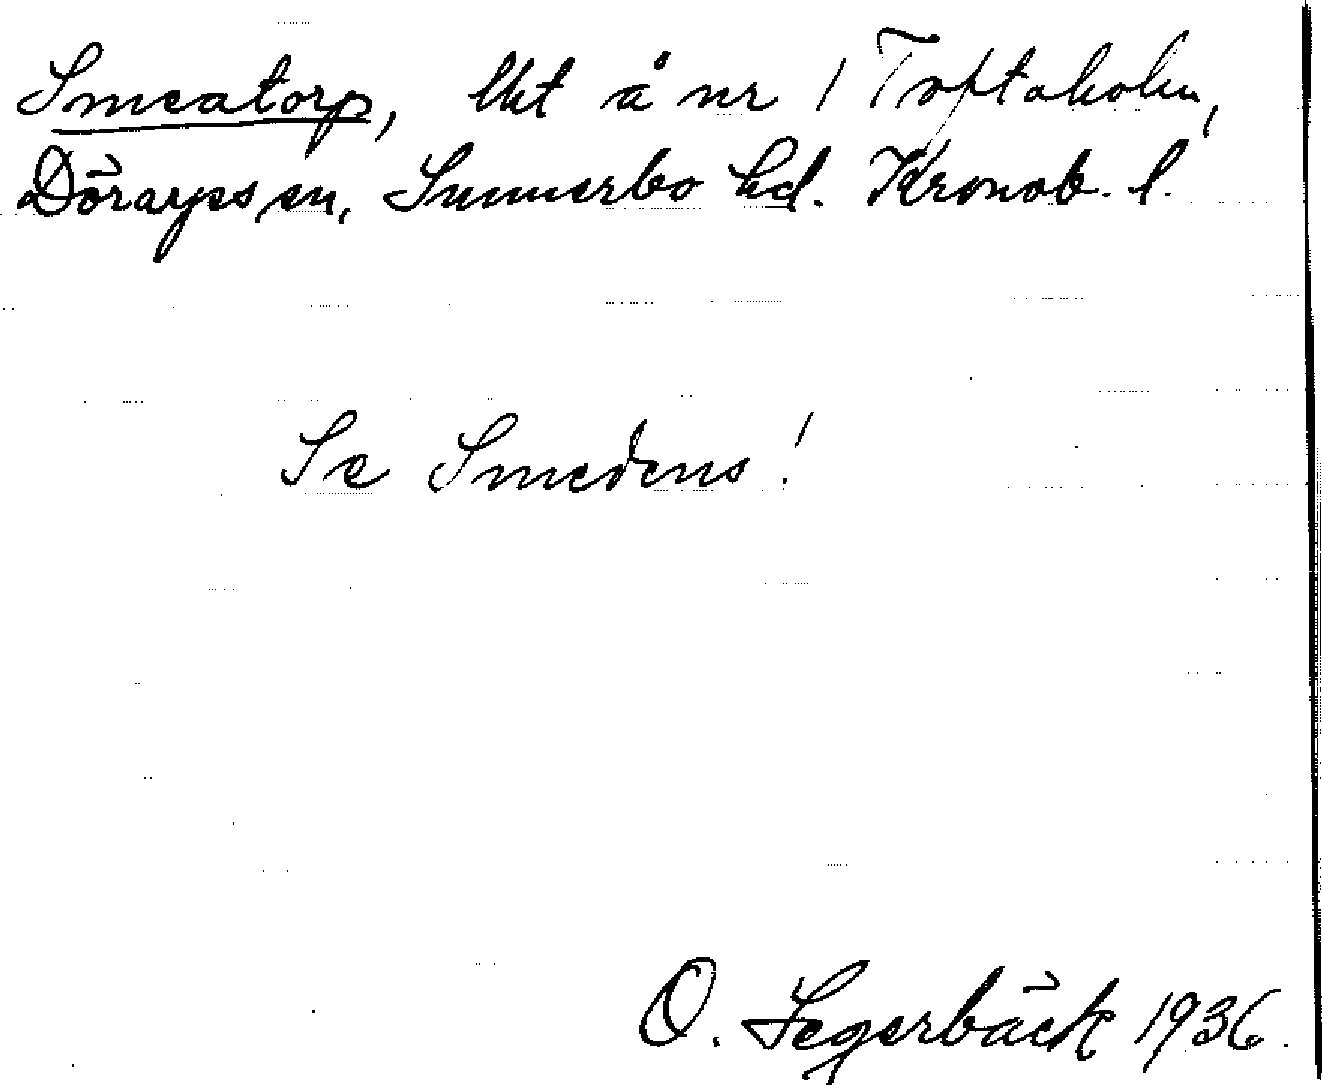 Smeatorp, lht å nr 1 Toftaholm,
Döraryds sn, Sunnerbo hd. Kronob. l.
Se Smedens!
O. Segerbäck 1936.